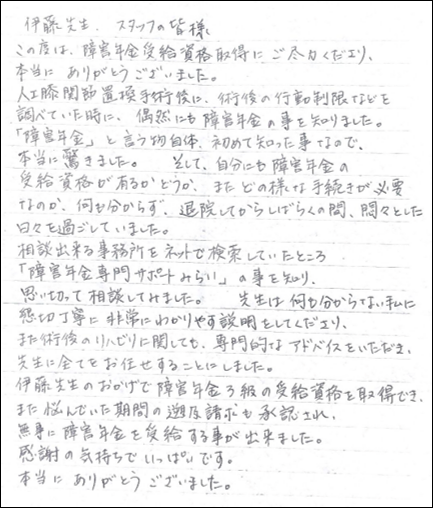 伊藤先生、スタッフの皆様
この度は、障害年金受給資格取得にご尽力くださり、
本当にありがとうございました。
人工膝関節置換手術後に、術後の行動制限などを
調べていた時に、偶然にも障害年金の事を知りました。
「障害年金」と言う物自体、初めて知った事なので、
本当に驚きました。 そして、自分にも障害年金の
受給資格が有るかどうか、またどの様な手続きが必要
なのか、何も分からず、退院してからしばらくの間、悶々とした
日々を過ごしていました。
相談出来る事務所をネットで検索していたところ
「障害年金専門サポートみらい」の事を知り、
思い切って相談してみました。 先生は何も分からない私に
懇切丁寧に非常にわかりやす説明をしてくださり、
また術後のリハビリに関しても、専門的なアドバイスをいただき、
先生に全てをお任せすることにしました。
伊藤先生のおかげで障害年金3級の受給資格を取得でき、
また悩んでいた期間の遡及請求も承認され、
無事に障害年金を受給する事が出来ました。
感謝の気持ちでいっぱいです。
本当にありがとうございました。